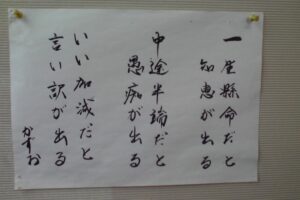 一生懸命だと
知恵が出る
中途半端だと
愚痴が出る
いい加減だと
言い訳が出る